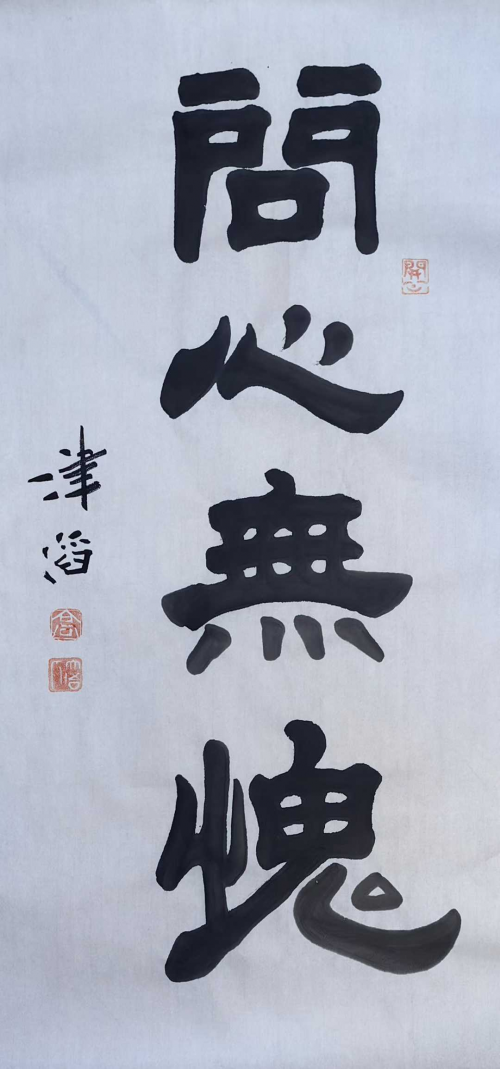 問心無愧
津滔